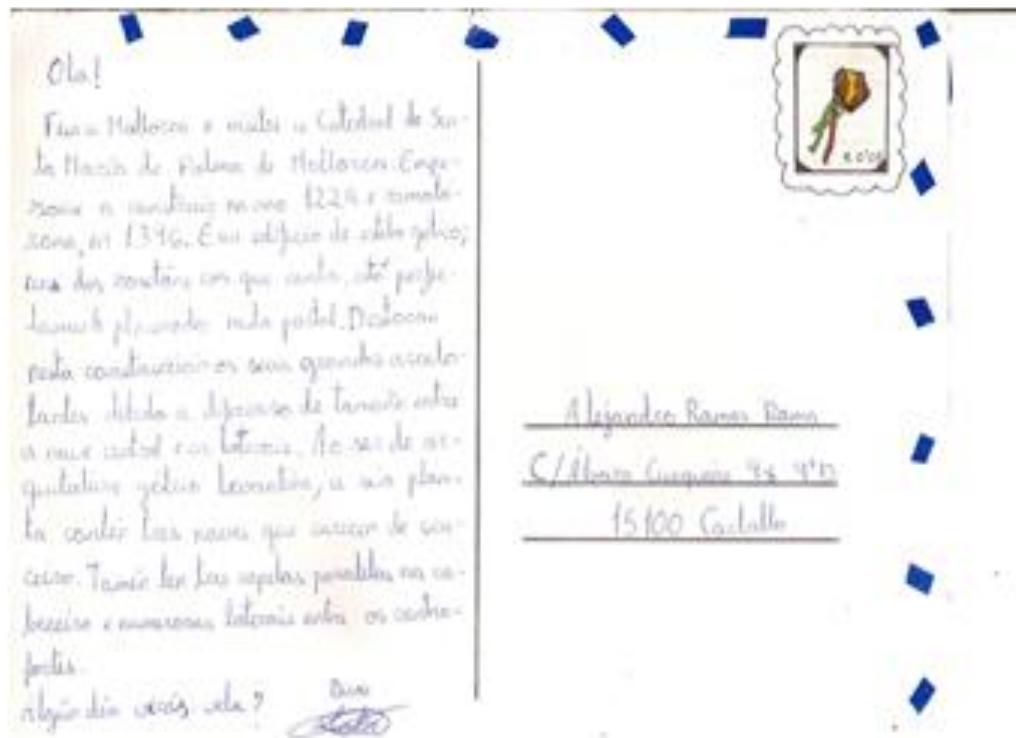 Ola!
Fun a Mallorca e visitei a Catedral de San-
ta María de Palma de Mallorca. Empe-
zouse a construír no ano 1229 e rematou-
se en 1346. É un edificio de estilo gótico,
dos que conta, até perfec-
tamente nesta postal. Destacan
nesta construción os seus grandes arcobo-
tantes debido a diferenza de tamaño entre
a nave central e as laterais. Ao ser de ar-
quitectura gótica levantina, a súa plan-
ta contén tres naves que carecen de cru-
ceiro. Tamén ten tres capelas paralelas na ca-
beceira e numerosas laterais entre os contra-
fortes.
Algún día virás vela?
Alejandro Ramos
C/Álvaro Cunqueiro
15100 Carballo